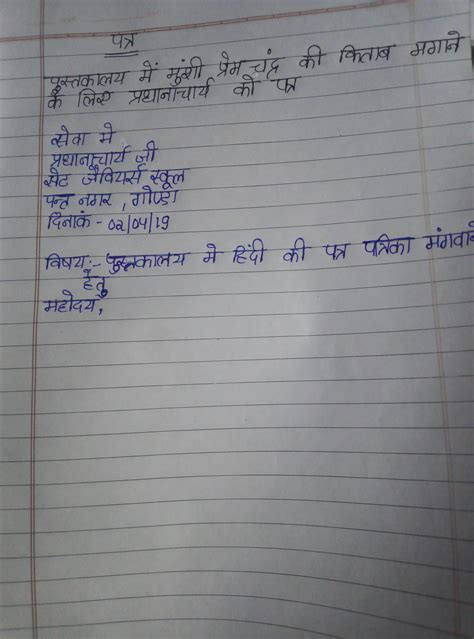 पत्र
पुस्तकालय में मुंशी प्रेम चंद्र की किताब मगाने
के लिए प्रधानाचार्य को पत्र
सेवा मे
प्रधानाचार्य जी
सेट जेवियर्स स्कूल
पन्त नगर , गोण्डा
दिनाकं - 02/04/19
विषय:- पुस्तकालय मे हिंदी की पत्र पत्रिका मंगवाने
हेतु
महोदय,